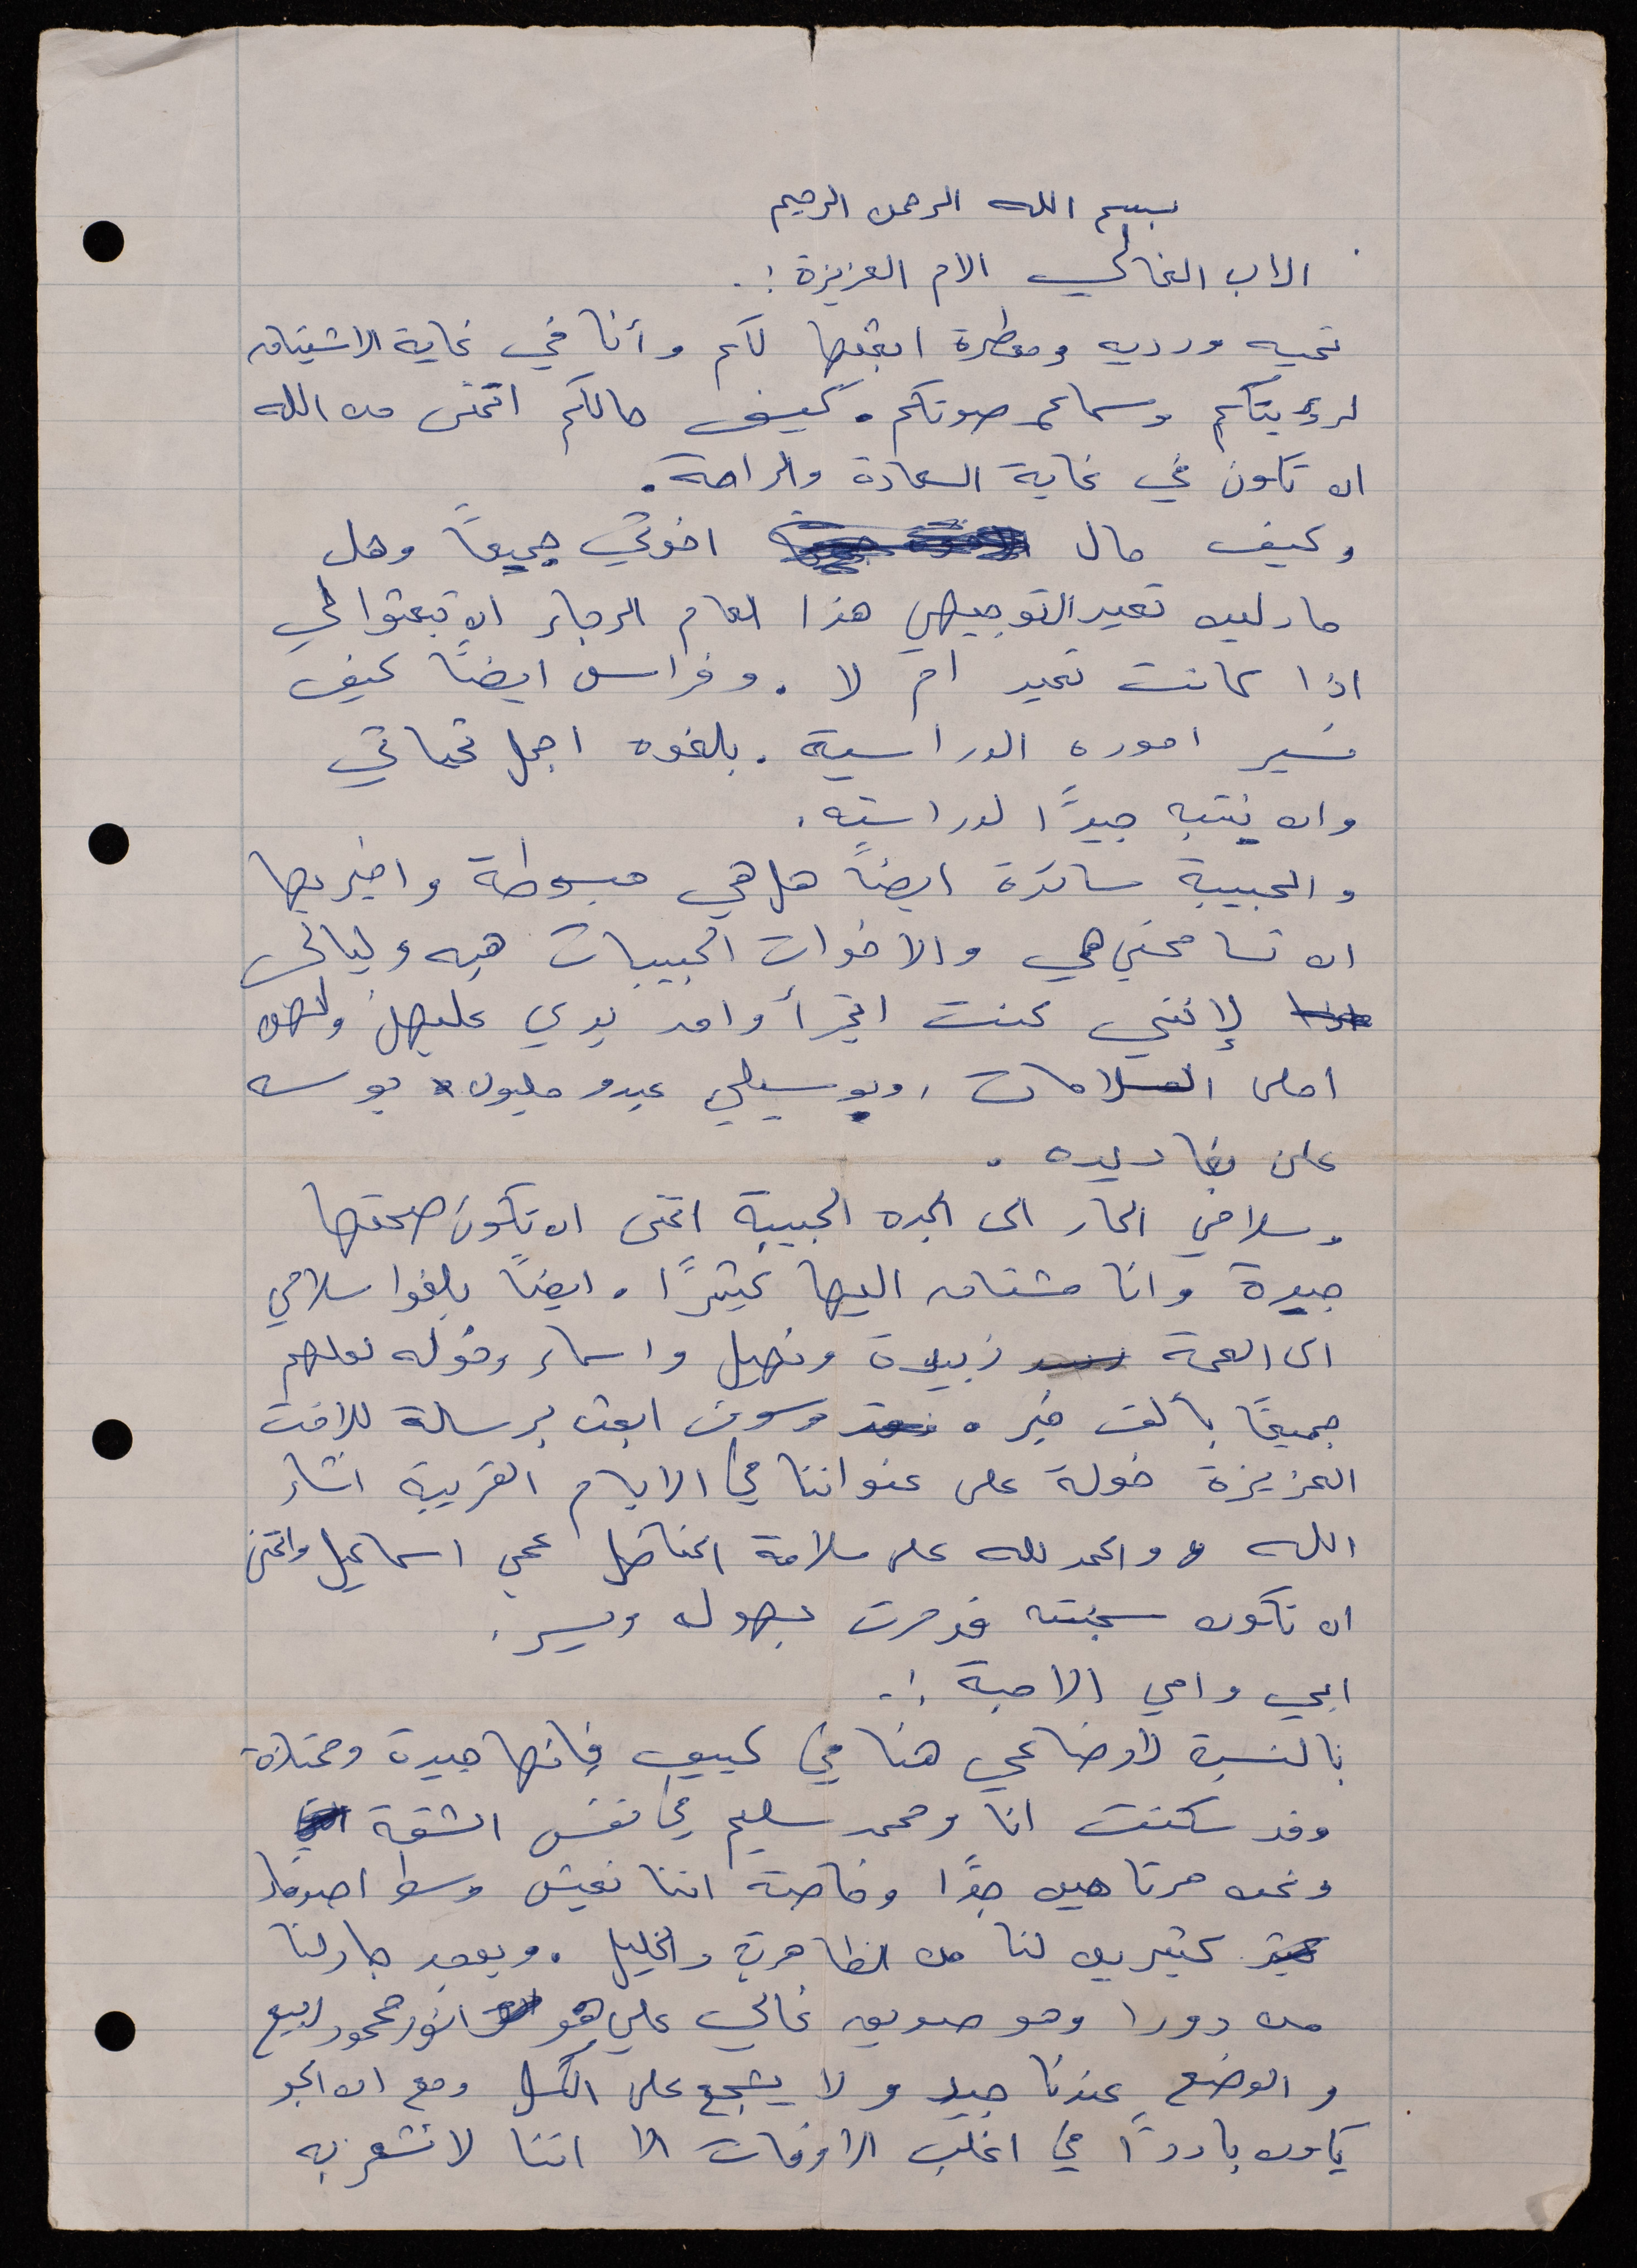 بسم الله الرحمن الرحيم
الاب الغالي الام العزيزة :.
تحيه ورديه ومعطرة ابعثها لكم وأنا في غاية الاشتياق
لرؤيتكم وسماع صوتكم. كيف حالكم اتمنى من الله
ان تكون في غاية السعادة والراحة.
وكيف حال اخوتي جميعًا وهل
مادلين تعيد التوجيهي هذا العام الرجاء ان تبعثوا لي
اذا كانت تعيد ام لا . وفراس ايضًا كيف
تسير اموره الدراسية . بلغوه اجمل تحياتي
وان ينتبه جيدًا لدراسته.
والحبيبة سائدة ايضًا هل هي مبسوطة واخبريها
ان تسامحني هي والاخوات الحبيبات هبه وليالي
لإنني كنت اتجرأ وامد يدي عليهن ولهن
احلى السلامات ، وبوسيلي عبدو مليون بوسه
على بغاديده .
وسلامي الحار الى الجده الحبيبة اتمنى ان تكون صحتها
جيدة وانا مشتاق اليها كثيرًا . ايضًا بلغوا سلامي
الى العمة زبيدة ونهيل واسماء وخوله لعلهم
جميعًا بألف خير . وسوف ابعث برسالة للاخت
العزيزة خولة على عنواننا في الايام القريبة انشاء
الله والحمد لله على سلامة المناضل عمي اسماعيل واتمنى
ان تكون سجنته قد مرت بسهوله ويسر .
ابي وامي الاحبة :.
بالنسبة لاوضاعي هنا في كييف فانها جيدة وممتازة
وقد سكنت انا ومحمد سليم في نفس الشقة
ونحن مرتاحين جدًا وخاصة اننا نعيش وسط اصدقاء
كثيرين لنا من الظاهرية والخليل . ويوجد جار لنا
من دورا وهو صديق غالي علي هو انور محمود ربيع
والوضع عندنا جيد ولا يشجع على الكسل ومع ان الجو
يكون باردًا في اغلب الاوقات الا اننا لا نشعر به